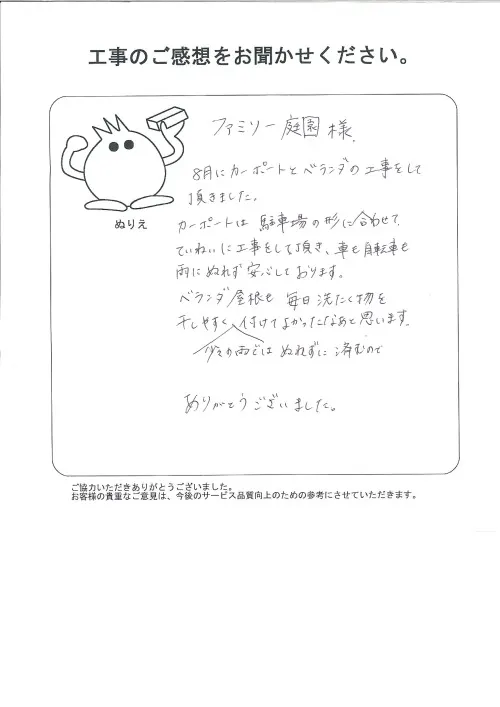 工事のご感想をお聞かせください。
ファミリー庭園 様
8月にカーポートとベランダの工事をして
頂きました。
カーポートは 駐車場の形に合わせて
ていねいに工事をして頂き、車も自転車も
雨にぬれず安心しております。
ベランダ屋根も 毎日洗たく物を
干しやすく 付けてよかったなあと思います。
少々の雨ではぬれずに済むので
ありがとうございました。
ぬりえ
ご協力いただきありがとうございました。
お客様の貴重なご意見は、今後のサービス品質向上のための参考にさせていただきます。